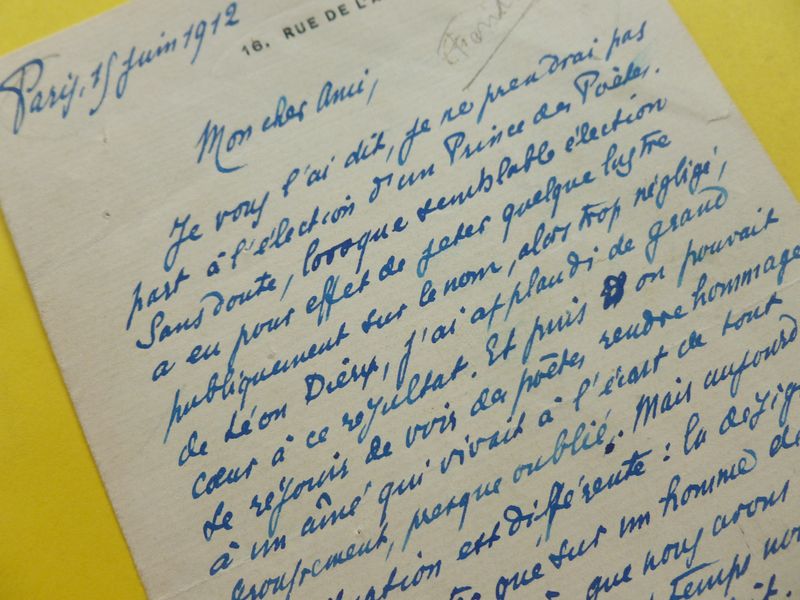 Paris, 15 juin 1912
16, RUE DE L'A
Mon cher Ami,
Je vous l'ai dit, je ne prendrai pas
part à l'élection d'un Prince des Poètes.
Sans doute, lorsque semblable élection
a eu pour effet de jeter quelque lustre
publiquement sur le nom, alors trop négligé,
de Léon Dierx, j'ai applaudi de grand
cœur à ce résultat. Et puis on pouvait
se réjouir de voir des poètes rendre hommage
à un aîné qui vivait à l'écart de tout
groupement, presque oublié. Mais aujourd
uation est différente : la désig
que sur un homme de
que nous avons
temps